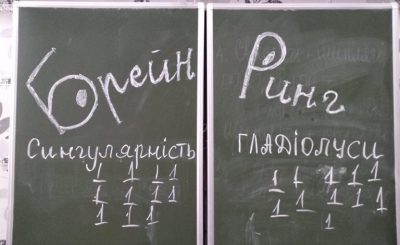 Брейн
Сингулярність
1 1 1 1
1 1 1 1
1 1 1
Ринг
ГЛАДІОЛУСИ
1 1 1 1 1
1 1 1 1 1
1